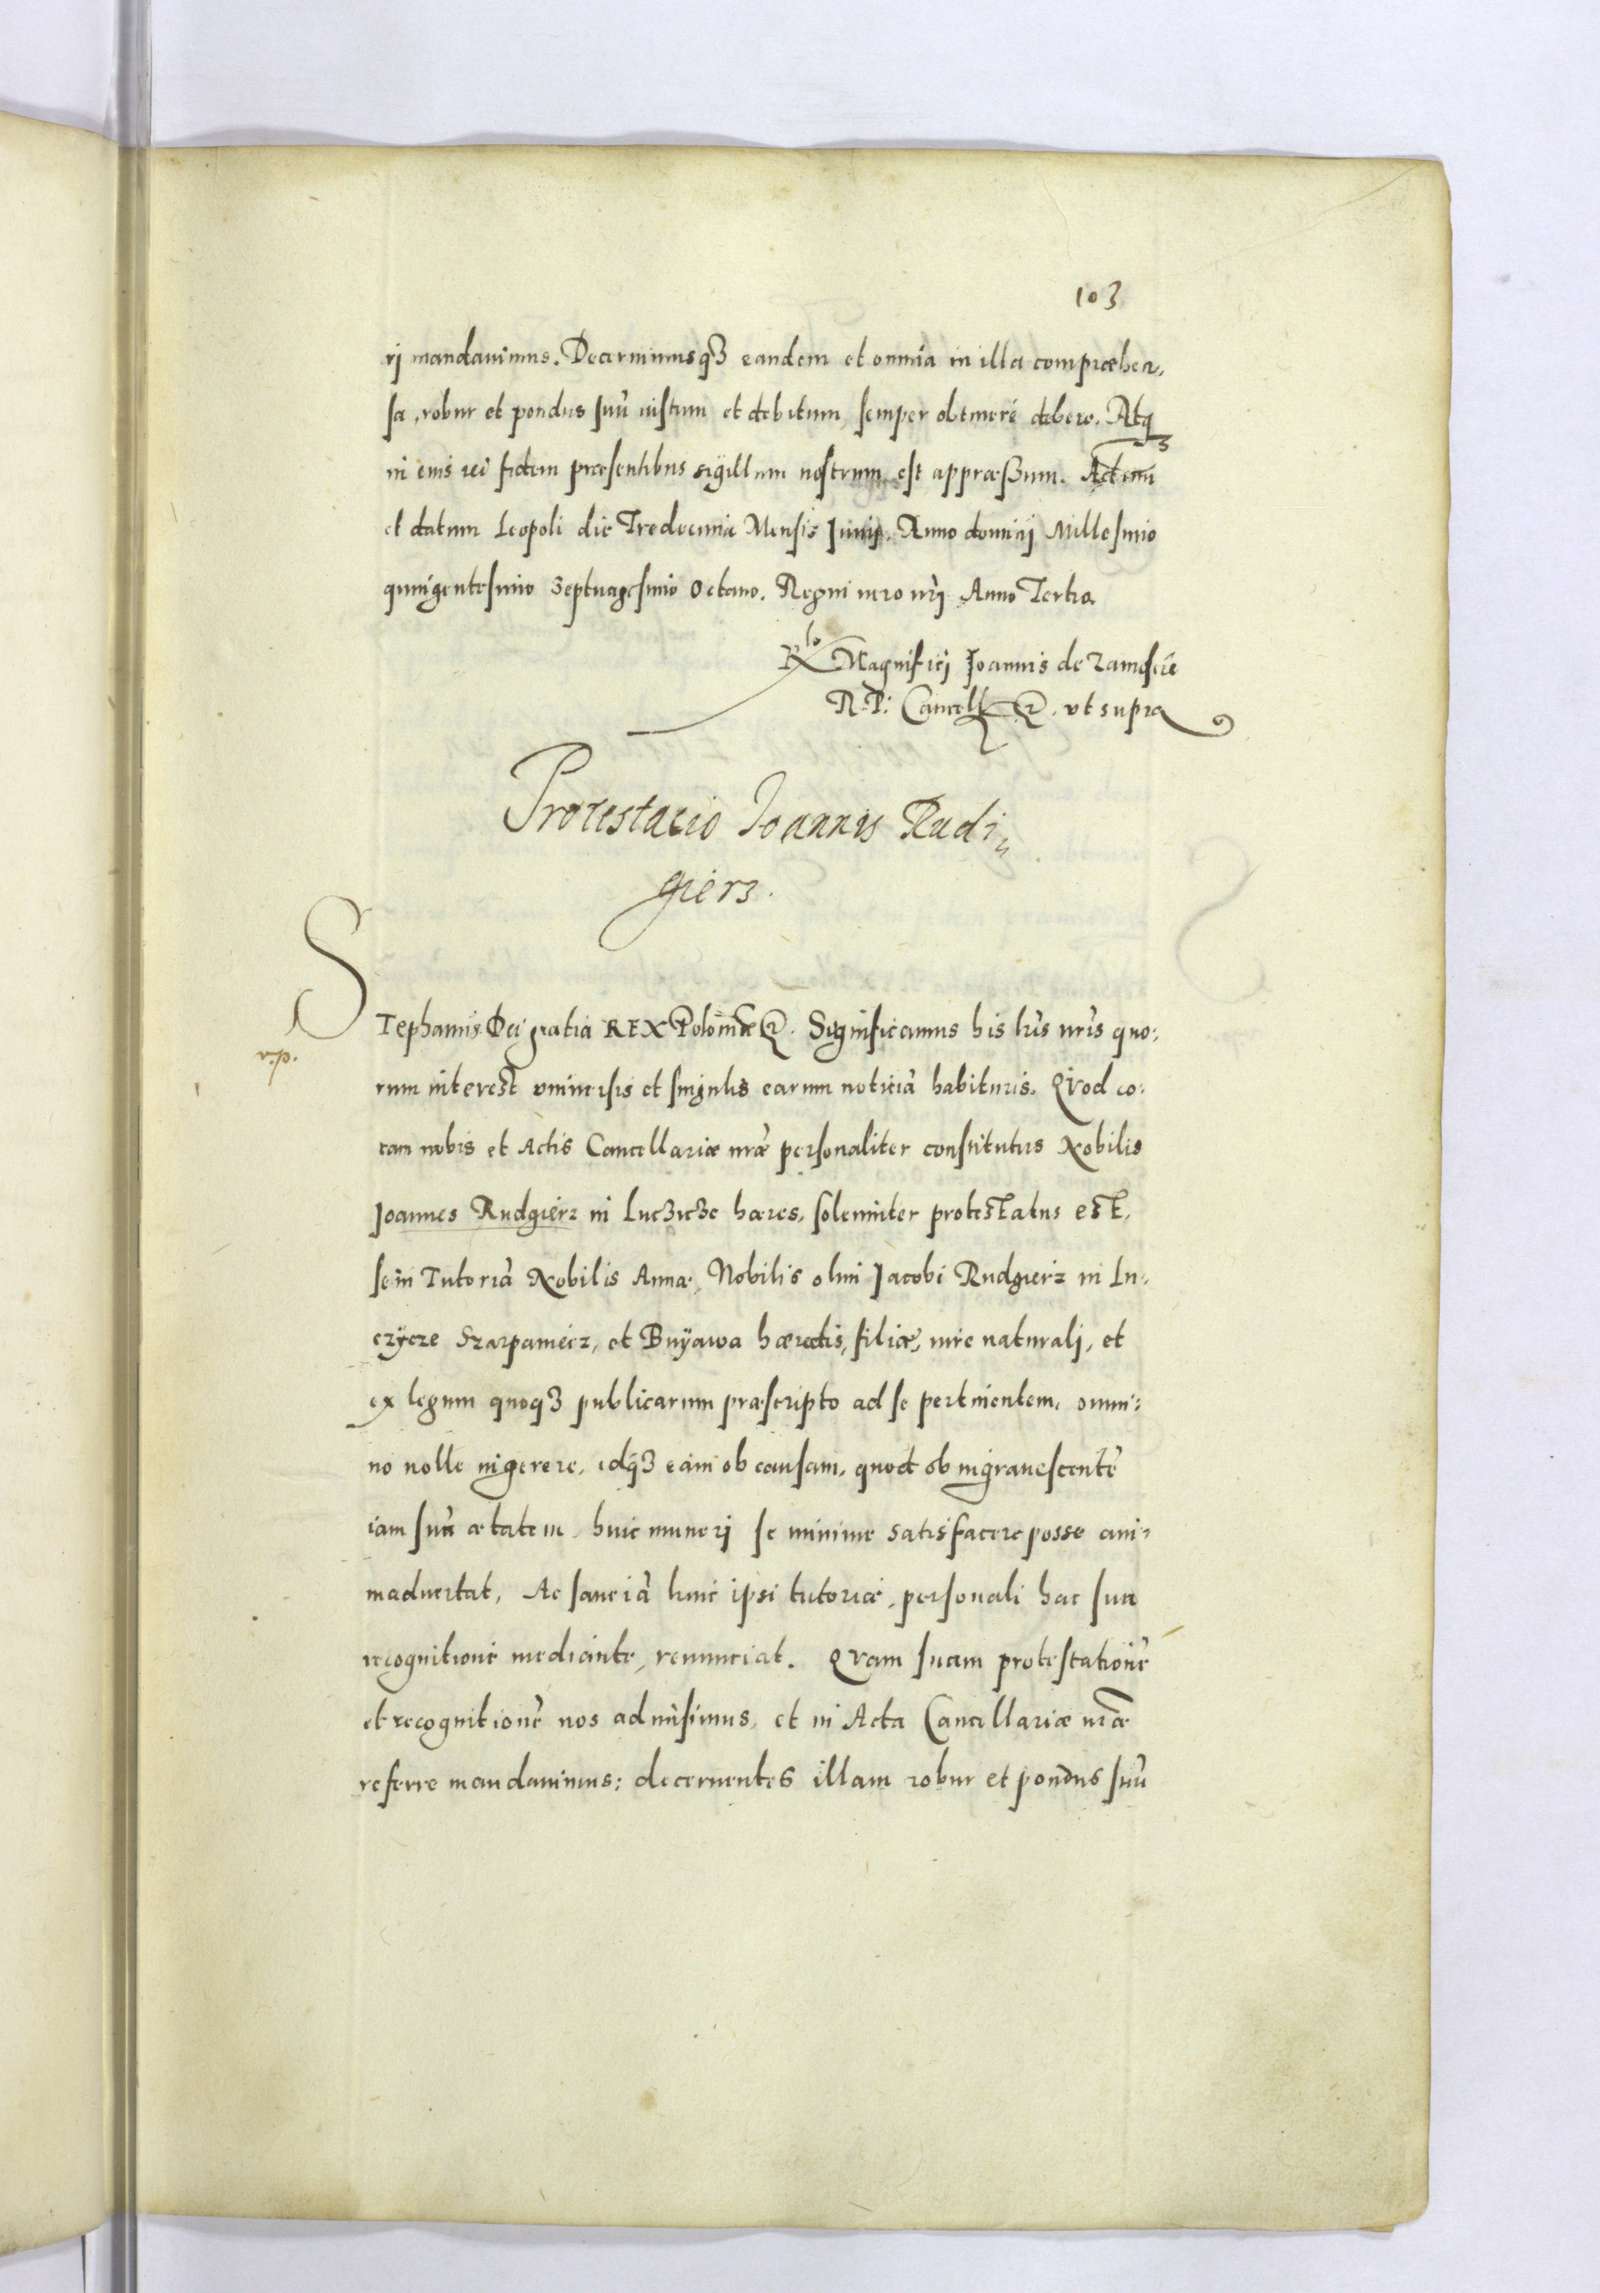 103
rj mandauimus. Decernimusq3 eandem et omnia in illa compræhen,
sa, robur et pondus suũ iustum et debitum, semper obtinere debere. Atq3
in eius rei fidem præsentibus sigillum nostrum est appræssum. Actum
et datum Leopoli die Tredecima Mensis Iunij. Anno dominj Millesimo
quingentesimo Septuagesimo Octauo. Regni uero nrĩ Anno Tertio.
Rlo Magnifici Joannis de Zamoscie
R. P. Cancell. &. vt supra
Protestacio Joannis Rudi„
gierz.
STephanus Dei gratia REX Poloniæ &. Significamus his lrĩs nrĩs quo:
v.p.
rum interest vniuersis et singulis earum noticiã habituris. Qvod co:
ram nobis et Actis Cancellariæ nræ personaliter constitutus Nobilis
Joannes Rudgierz in Luczicze hæres, solemniter protestatus est,
se in Tutoriã Nobilis Annæ, Nobilis olim Jacobi Rudgierz in Lu„
czÿcze Szarpaniecz, et Buÿawa hæredis, filiæ, iure naturali, et
ex legum quoq3 publicarum præscripto ad se pertinentem, omni:
no nolle ingerere, idq3 eam ob causam, quod ob ingrauescentẽ
iam suã ætatem, huic munerj se minime satisfacere posse ani:
maduertat, Ac sane iã huic ipsi tutoriæ, personali hac sua
recognitione mediante, renunciat. Qvam suam protestationẽ
et recognitionẽ nos admisimus, et in Acta Cancellariæ nræ
referre mandauimus: decernentes illam robur et pondus suũ